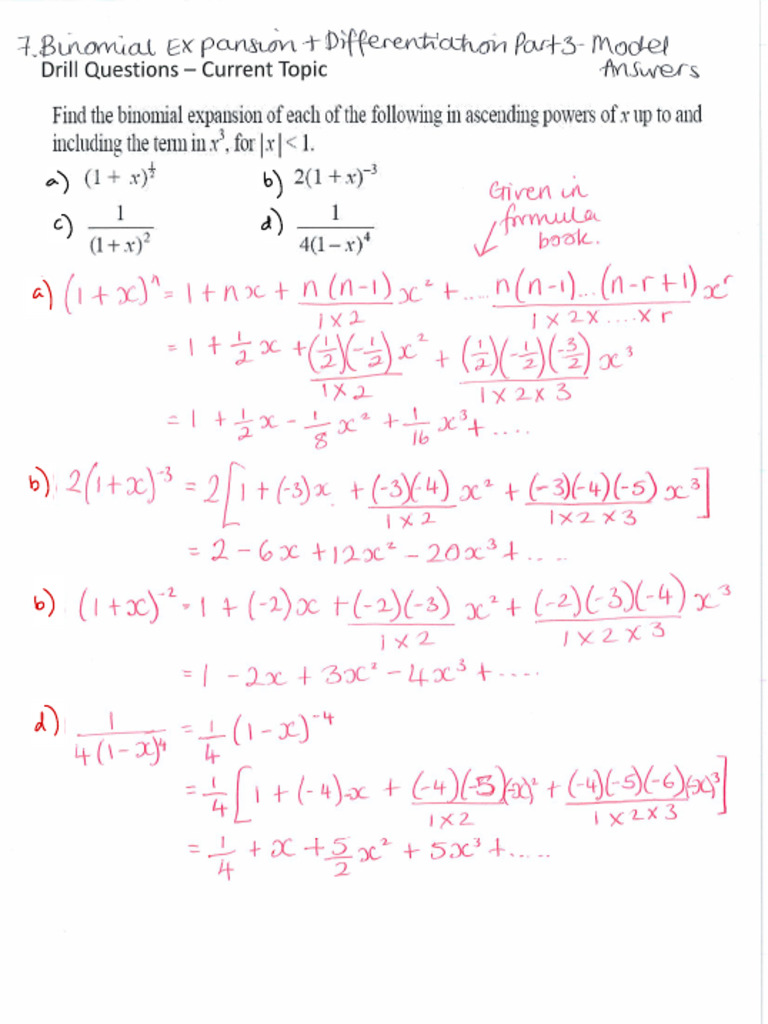 7. Binomial Expansion + Differentiation Part 3 - Model
Drill Questions – Current Topic Answers
Find the binomial expansion of each of the following in ascending powers of x up to and
including the term in x³, for |x| < 1.
a) (1 + x)^(1/2) b) 2(1 + x)^-3
c) 1/(1+x)² d) 1/(4(1−x)⁴)
Given in
formula
book.
a) (1+x)^n = 1 + nx + n(n-1)/(1×2) x² + .... n(n-1)...(n-r+1)/(1×2×....×r) x^r
= 1 + 1/2 x + (1/2)(-1/2)/(1×2) x² + (1/2)(-1/2)(-3/2)/(1×2×3) x³
= 1 + 1/2 x - 1/8 x² + 1/16 x³ + ....
b) 2(1+x)^-3 = 2[1 + (-3)x + (-3)(-4)/(1×2) x² + (-3)(-4)(-5)/(1×2×3) x³]
= 2 - 6x + 12x² - 20x³ + ....
b) (1+x)^-2 = 1 + (-2)x + (-2)(-3)/(1×2) x² + (-2)(-3)(-4)/(1×2×3) x³
= 1 - 2x + 3x² - 4x³ + ....
d) 1/(4(1-x)⁴) = 1/4 (1-x)^-4
= 1/4 [1 + (-4)-x + (-4)(-5)/(1×2) (-x)² + (-4)(-5)(-6)/(1×2×3) (-x)³]
= 1/4 + x + 5/2 x² + 5x³ + .....